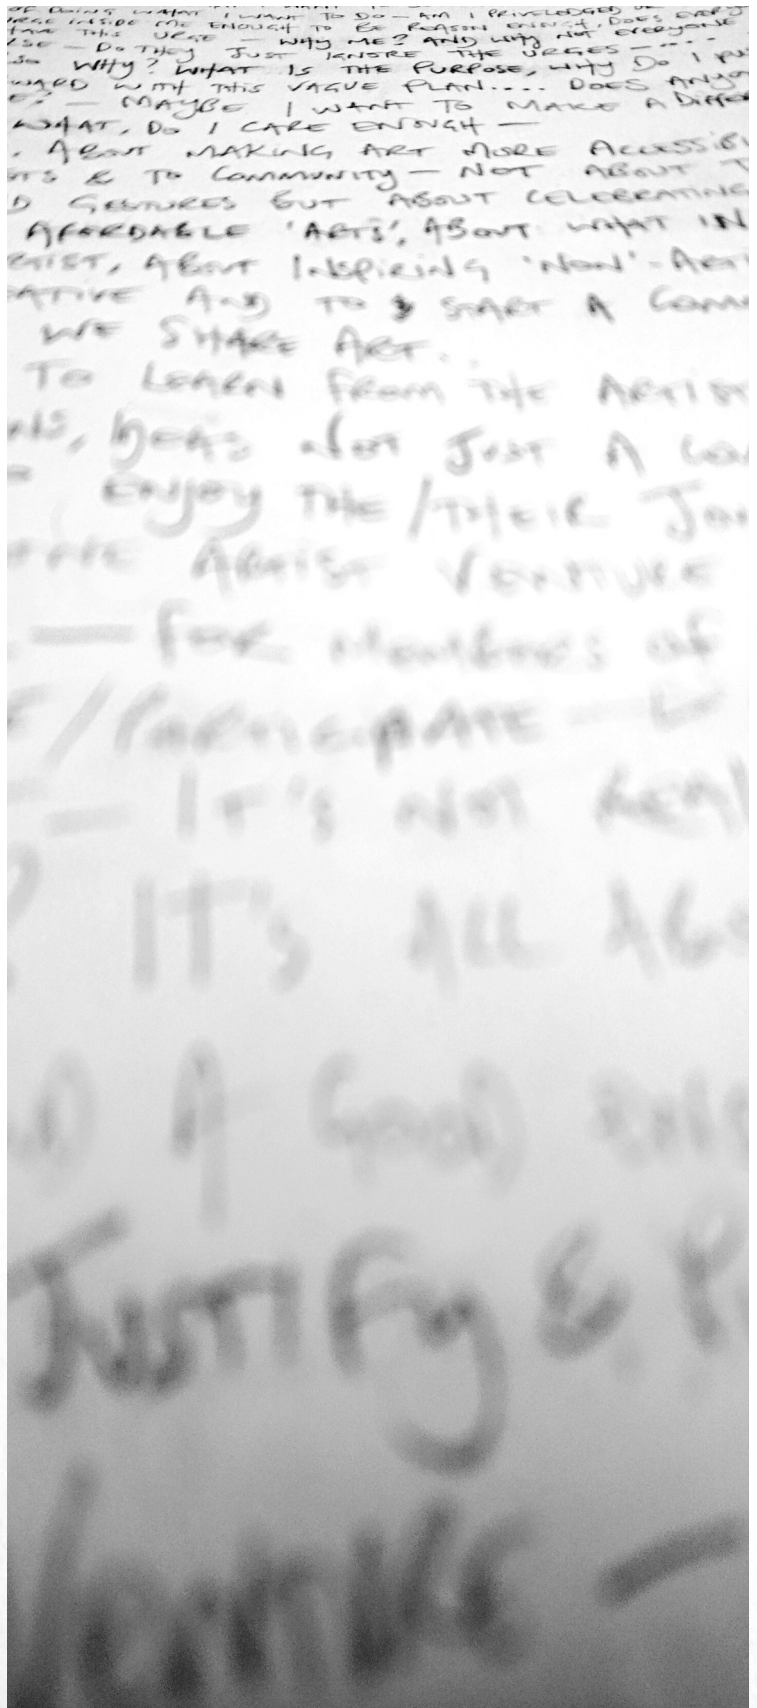 OF DOING WHAT I WANT TO DO — AM I PRIVELEDGED
URGE INSIDE ME ENOUGH TO BE REASON ENOUGH, DOES EVERY
HAVE THIS URGE — WHY ME? AND WHY NOT EVERYONE
LSE — DO THEY JUST IGNORE THE URGES — ....
SO WHY? WHAT IS THE PURPOSE, WHY DO I PU
WARD WITH THIS VAGUE PLAN.... DOES ANYO
E? — MAYBE I WANT TO MAKE A DIFFER
WHAT, DO I CARE ENOUGH —
. ABOUT MAKING ART MORE ACCESSIB
STS & TO COMMUNITY — NOT ABOUT T
D GESTURES BUT ABOUT CELEBRATING
AFFORDABLE 'ARTS', ABOUT WHAT IN
RTIST, ABOUT INSPIRING 'NON'-ARTI
ATIVE AND TO START A COMM
WE SHARE ART.
TO LEARN FROM THE ARTIST
NS, IDEAS NOT JUST A CO
ENJOY THE/THEIR JOU
THE ARTIST VENTURE
— FOR MEMBERS OF
E/PARTICIPATE —
— IT'S NOT REAL
? IT'S ALL ABO
D A GOOD
JUSTIFY & P
VENTURE —